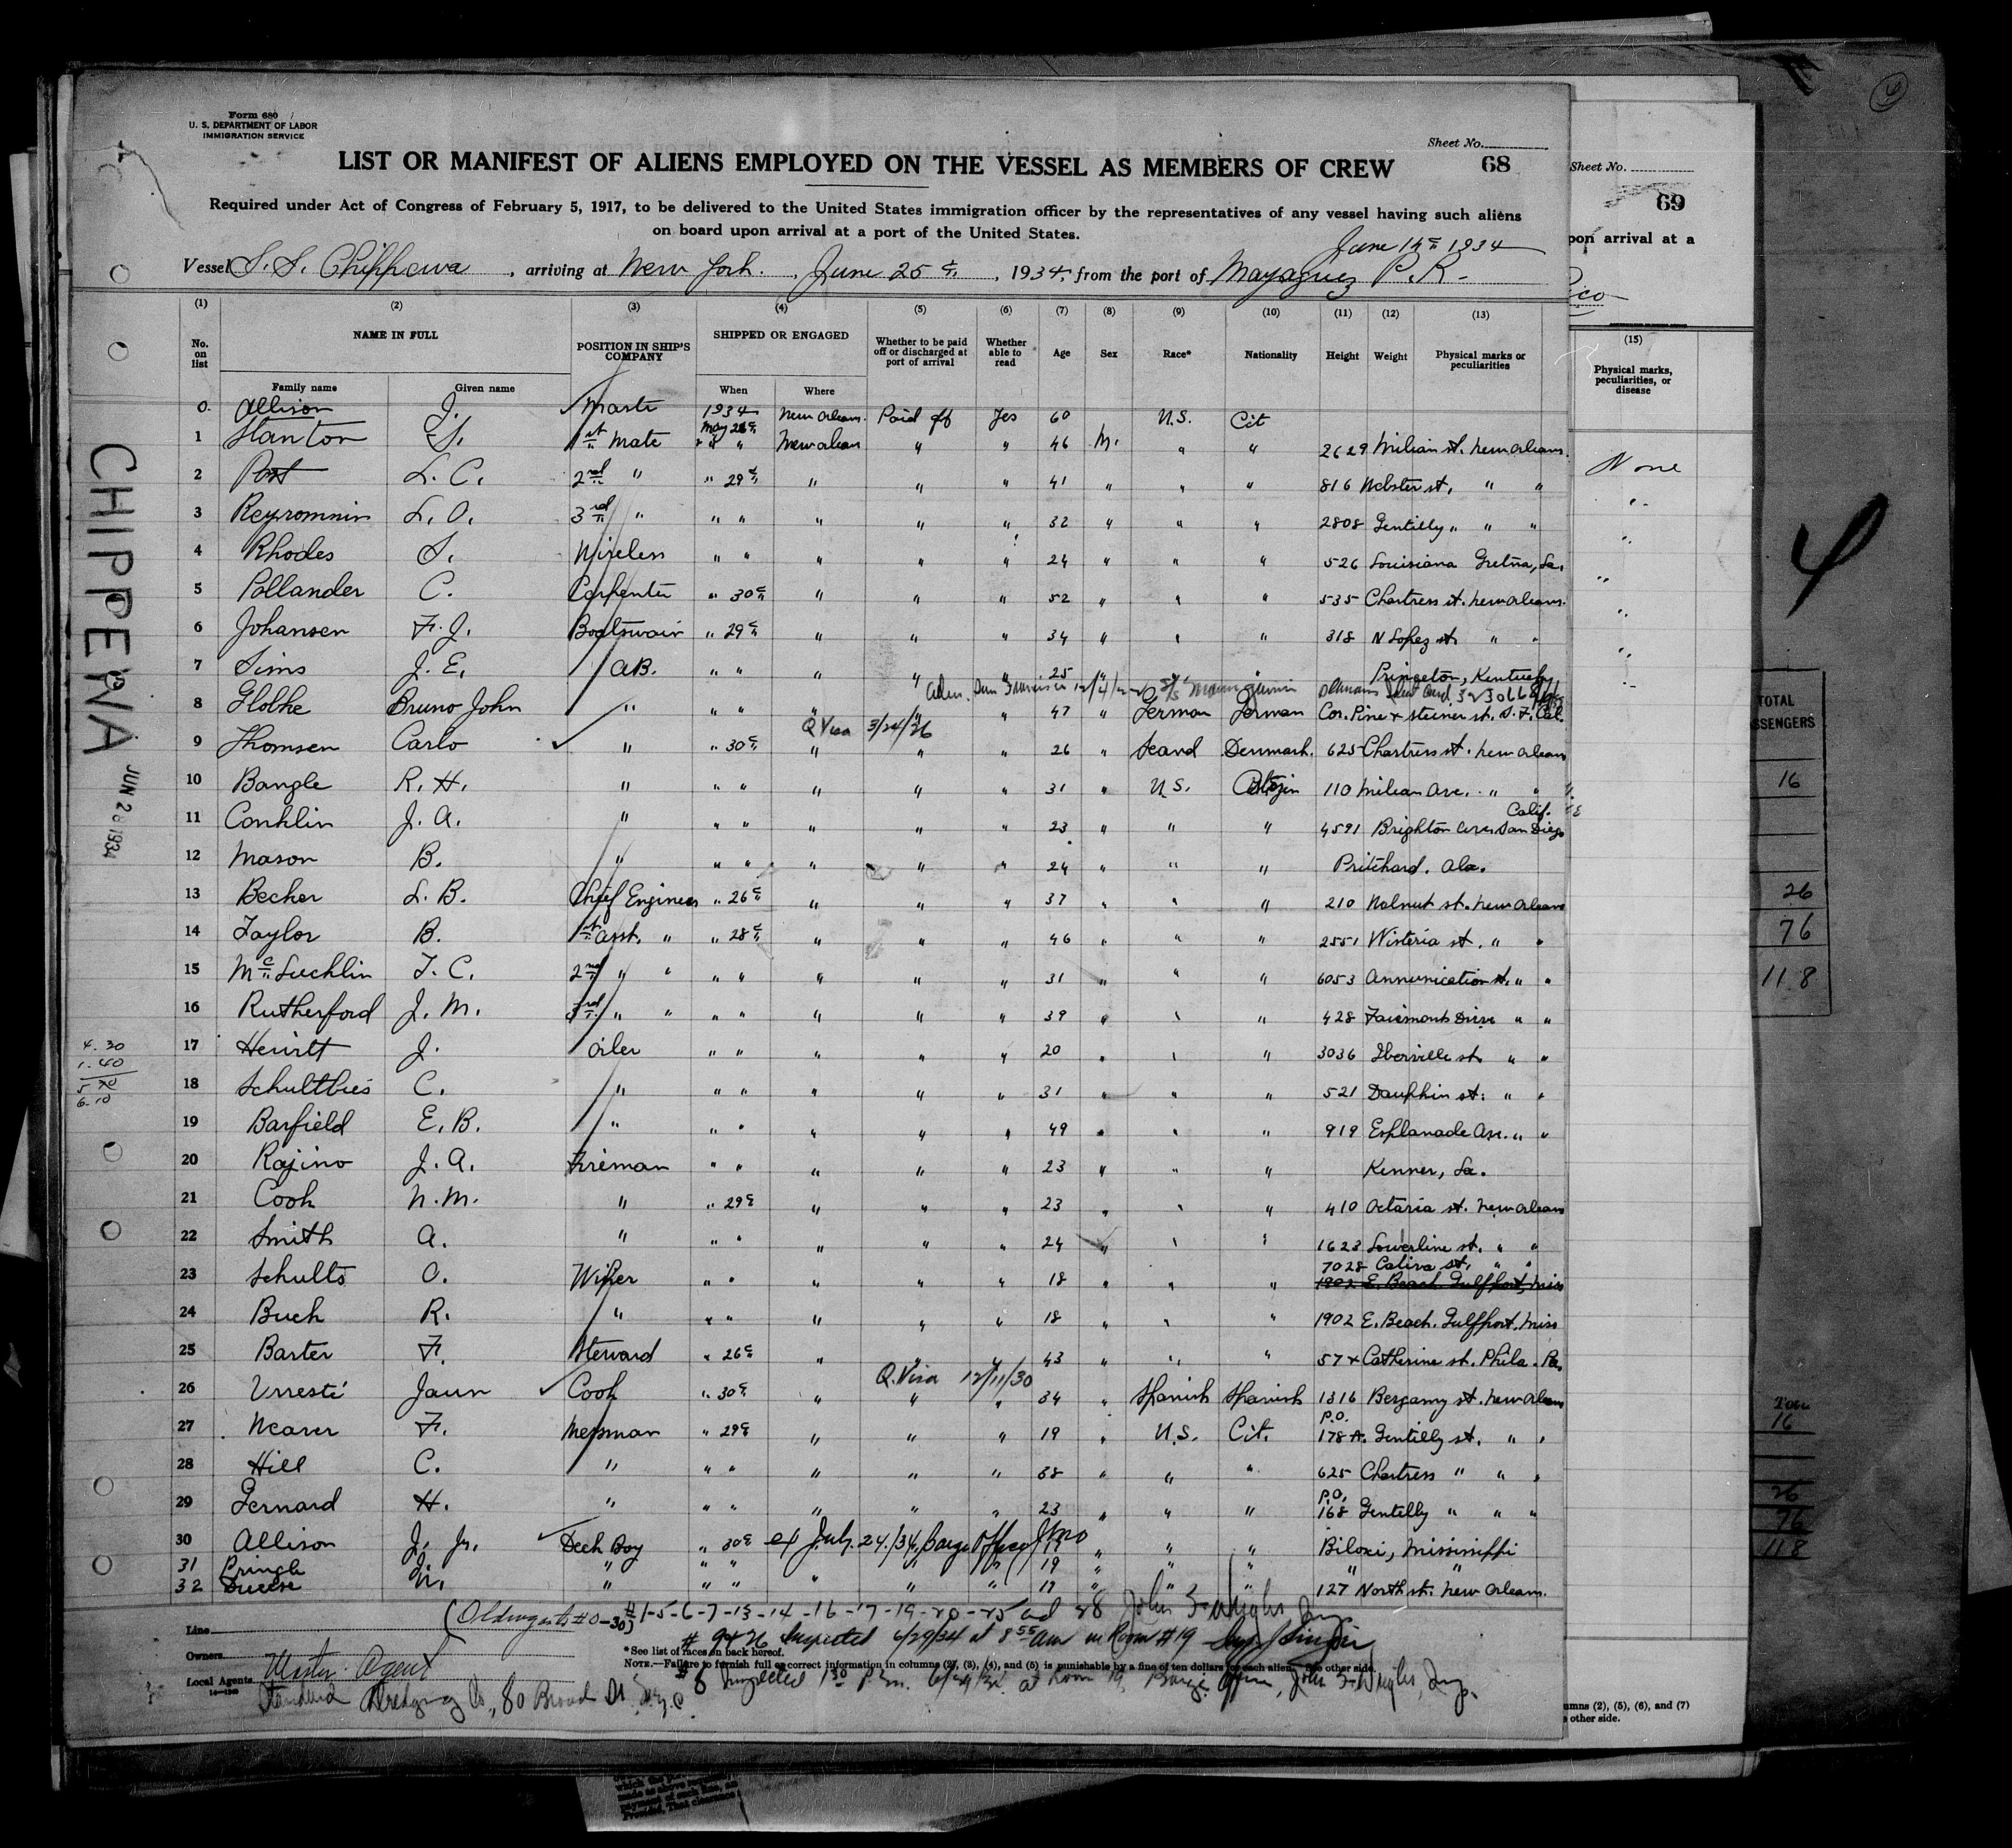 Form 680
U. S. DEPARTMENT OF LABOR
IMMIGRATION SERVICE
Sheet No.
68
LIST OR MANIFEST OF ALIENS EMPLOYED ON THE VESSEL AS MEMBERS OF CREW
Required under Act of Congress of February 5, 1917, to be delivered to the United States immigration officer by the representatives of any vessel having such aliens
on board upon arrival at a port of the United States.
June 14th 1934
Vessel S. S. Chippewa, arriving at New York, June 25th, 1934, from the port of Mayaguez P. R.
(1) (2) (3) (4) (5) (6) (7) (8) (9) (10) (11) (12) (13)
No. on list NAME IN FULL POSITION IN SHIP'S COMPANY SHIPPED OR ENGAGED Whether to be paid off or discharged at port of arrival Whether able to read Age Sex Race* Nationality Height Weight Physical marks or peculiarities
Family name Given name When Where
0. Allison J. Master 1934 New Orleans Paid off Yes 60 U.S. Cit
1 Stanton May 26th 1st Mate " " New Orleans " " 46 M. " " 2629 Milian st. New Orleans
2 Post L. C. 2nd " " 29th " " " 41 " " " 816 Webster st. " "
3 Reyromnin L. O. 3rd " " " " " " 32 " " " 2808 Gentilly " " "
4 Rhodes S. Wireless " " " " " 24 " " 526 Louisiana Gretna, La.
5 Pollander C. Carpenter " 30th " " " 52 " " " 535 Chartress st. New Orleans
6 Johansen F. J. Boatswain " 29th " " " 34 " " " 318 N Lopez st. " "
7 Sims J. E. AB. " " " " " 25 " " Princeton, Kentucky
8 Globke Bruno John " " " " " " 47 " German German Cor. Pine & Steiner st. S. F. Cal.
Q Visa 3/24/26
9 Thomsen Carlo " " 30th " " " 26 " Scand Denmark 625 Chartress st. New Orleans
10 Bangle R. H. " " " " " " 31 " U.S. 110 Milian Ave. " "
Calif.
11 Conklin J. A. " " " " " " 23 " " " 4591 Brighton Ave. San Diego
12 Mason B. " " " " " " 24 " " " Pritchard, Ala.
13 Becker L. B. Chief Engineer " 26th " " " 37 " " " 210 Walnut st. New Orleans
14 Taylor B. 1st asst. " " 28th " " " 46 " " " 2551 Wisteria st. " "
15 McLuchlin T. C. 2nd " " " " " " " 31 " " " 6053 Annunication st. " "
16 Rutherford J. M. 3rd " " " " " " " 39 " " " 428 Fairmont Drive " "
17 Hewitt J. Oiler " " " " " 20 " " " 3036 Iberville st. " "
18 Schultbies C. " " " " " " 31 " " " 521 Dauphin st. " "
19 Barfield E. B. " " " " " " 49 " " " 919 Esplanade Ave. " "
20 Rajino J. A. Fireman " " " " " 23 " " " Kenner, La.
21 Cook N. M. " " 29th " " " 23 " " " 410 Octavia st. New Orleans
22 Smith A. " " " " " " 24 " " " 1623 Lowerline st. " "
7028 Caliva st. " "
23 Schults O. Wiper " " " " " 18 " " " 1902 E. Beach. Gulfport, Miss
24 Buck R. " " " " " " 18 " " " 1902 E. Beach. Gulfport, Miss
25 Barter F. Steward " 26th " " " 43 " " " Catherine st. Phila. Pa.
Q. Visa 12/11/30
26 Urresti Jaun Cook " 30th " " " 34 " Spanish Spanish 1316 Bergamy st. New Orleans
P.O.
27 Nearer F. Messman " 29th " " " 19 " U.S. Cit. 178 A. Gentilly st. " "
28 Hill C. " " " " " " 38 " " " 625 Chartress " " "
P.O.
29 Gernard H. " " " " " " 23 " " " 168 Gentilly " " "
30 Allison J. Jr. Deck Boy " 30th July 24/34 Barge Office " " " Biloxi, Mississippi
31 Pringle J. " " " " " " 19 " " " " "
32 " " " " " " 19 " " " 127 North st. New Orleans.
#1-5-6-7-13-14-16-17-19-20-25 and 28
# 9 & 26 Inspected 6/29/34 at 8 55 am in Room #19
Line
Owners
Local Agents
*See list of races on back hereof.
NOTE.—Failure to furnish full or correct information in columns (2), (3), (4), and (5) is punishable by a fine of ten dollars for each alien. See other side.
Master Agent
Standard Dredging Co., 80 Broad St. N.Y.C
# 8 Inspected 1 30 P.m. at Room 19, Barge Office
CHIPPEWA
JUN 26 1934
4.30
1.40
5 70
6.10
Sheet No.
69
pon arrival at a
ico
(15)
Physical marks, peculiarities, or disease
None
umns (2), (5), (6), and (7)
e other side.
TOTAL
SSENGERS
16
26
76
118
16
26
76
118